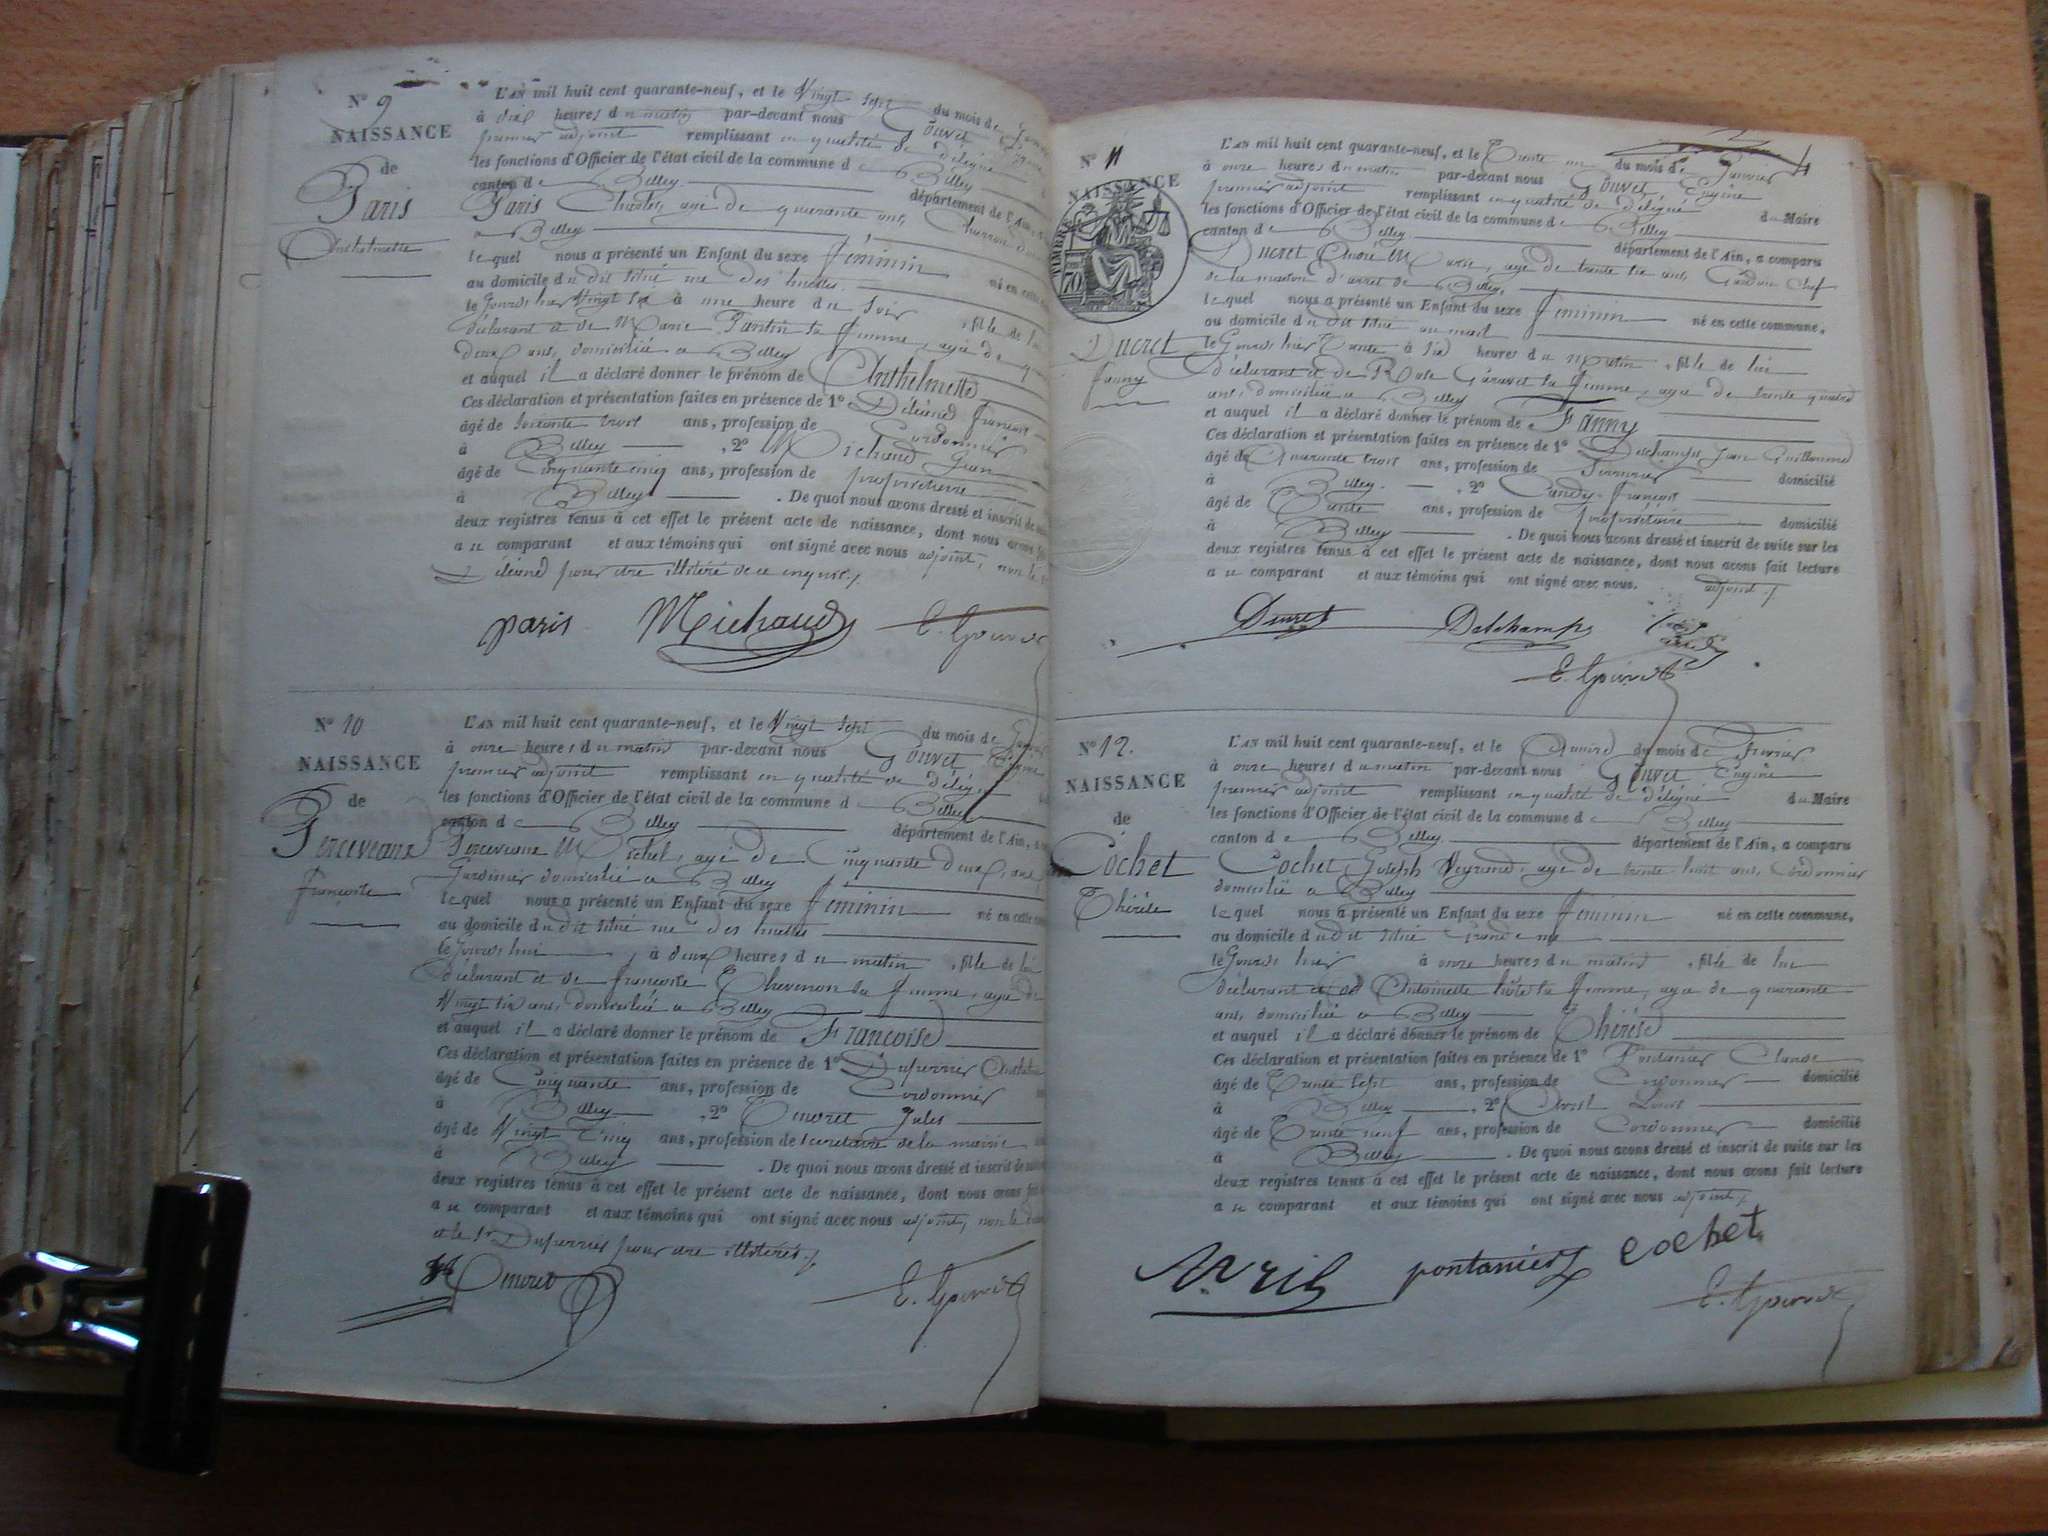 N° 9
NAISSANCE
de
Paris
Anthelmette
L'AN mil huit cent quarante-neuf, et le Vingt Sept du mois de
à dix heures du matin par-devant nous Gouvet
premier adjoint remplissant en qualité de délégué
les fonctions d'Officier de l'état civil de la commune de Belley
canton de Belley département de l'Ain,
Paris Charles, agé de quarante ans, Charron
a Belley
lequel nous a présenté un Enfant du sexe féminin
au domicile du dit situé rue des né en cette
le Jourd'hier Vingt Six à une heure du Soir , fille de lui
déclarant et de Marie Pantin sa femme, agée de
deux ans, domiciliée a Belley
et auquel il a déclaré donner le prénom de Anthelmette
Ces déclaration et présentation faites en présence de 1° François
âgé de soixante trois ans, profession de Cordonnier
à Belley , 2° Michaud Jean
âgé de Cinquante cinq ans, profession de propriétaire
à Belley . De quoi nous avons dressé et inscrit de
deux registres tenus à cet effet le présent acte de naissance, dont nous avons
au comparant et aux témoins qui ont signé avec nous adjoint, non le
pour être illitéré de ce enquis./.
paris Michaud E. Gouvet
N° 10
NAISSANCE
de
Perceveaux
françoise
L'AN mil huit cent quarante-neuf, et le Vingt Sept du mois de
à onze heures du matin par-devant nous Gouvet
premier adjoint remplissant en qualité de délégué
les fonctions d'Officier de l'état civil de la commune de Belley
canton de Belley département de l'Ain,
Perceveaux Michel, agé de Cinquante deux ans,
Jardinier domicilié a Belley
lequel nous a présenté un Enfant du sexe féminin né en cette
au domicile du dit situé rue des
le Jourd'hui , à deux heures du matin , fille de lui
déclarant et de françoise Thevenon sa femme, agée de
Vingt six ans, domiciliée a Belley
et auquel il a déclaré donner le prénom de Françoise
Ces déclaration et présentation faites en présence de 1° Duferrier
âgé de Cinquante ans, profession de Cordonnier
à Belley , 2° Jules
âgé de Vingt Cinq ans, profession de secretaire de la mairie
à Belley . De quoi nous avons dressé et inscrit de
deux registres tenus à cet effet le présent acte de naissance, dont nous avons fait
au comparant et aux témoins qui ont signé avec nous adjoint, non le
et le Sr Duferrier pour être illitérés./.
E. Gouvet
N° 11
NAISSANCE
TIMBRE
70
Ducret
fanny
L'AN mil huit cent quarante-neuf, et le Trente un du mois de Janvier
à onze heures du matin par-devant nous Gouvet Eugène
premier adjoint remplissant en qualité de délégué du Maire
les fonctions d'Officier de l'état civil de la commune de Belley
canton de Belley département de l'Ain, a comparu
Ducret André Marie, agé de trente six ans, Gardien Chef
de la maison d'arret de Belley,
lequel nous a présenté un Enfant du sexe féminin né en cette commune,
au domicile du dit situé au mail
le Jourd'hier Trente à six heures du matin , fille de lui
déclarant et de Rose Garavet sa femme, agée de trente quatre
ans, domiciliée a Belley
et auquel il a déclaré donner le prénom de Fanny
Ces déclaration et présentation faites en présence de 1° Deschamps Jean Guillaume
âgé de Quarante trois ans, profession de Serrurier domicilié
à Belley , 2° François
âgé de Trente ans, profession de propriétaire domicilié
à Belley . De quoi nous avons dressé et inscrit de suite sur les
deux registres tenus à cet effet le présent acte de naissance, dont nous avons fait lecture
au comparant et aux témoins qui ont signé avec nous. adjoint./.
Ducret Delchamps
E. Gouvet
N° 12.
NAISSANCE
de
Cochet
Thérèse
L'AN mil huit cent quarante-neuf, et le Quinze du mois de Février
à onze heures du matin par-devant nous Gouvet Eugène
premier adjoint remplissant en qualité de délégué du Maire
les fonctions d'Officier de l'état civil de la commune de Belley
canton de Belley département de l'Ain, a comparu
Cochet Joseph agé de trente huit ans, Cordonnier
domicilié a Belley
lequel nous a présenté un Enfant du sexe féminin né en cette commune,
au domicile du dit situé Grande rue
le Jourd'hier à onze heures du matin , fille de lui
déclarant et de Antoinette sa femme, agée de quarante
ans, domiciliée a Belley
et auquel il a déclaré donner le prénom de Thérèse
Ces déclaration et présentation faites en présence de 1° Pontanier Claude
âgé de Trente Sept ans, profession de Cordonnier domicilié
à Belley , 2° Avril Louis
âgé de Trente neuf ans, profession de Cordonnier domicilié
à Belley . De quoi nous avons dressé et inscrit de suite sur les
deux registres tenus à cet effet le présent acte de naissance, dont nous avons fait lecture
au comparant et aux témoins qui ont signé avec nous adjoint./.
Avril pontanier cochet
E. Gouvet